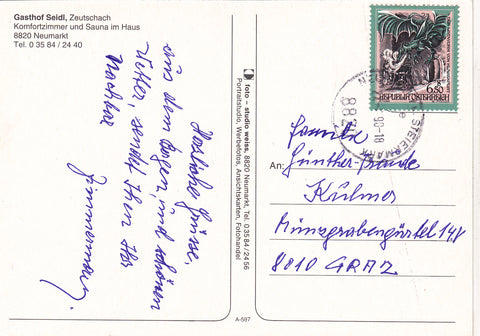 Gasthof Seidl, Zeutschach
Komfortzimmer und Sauna im Haus
8820 Neumarkt
Tel. 0 35 84 / 24 40
Herzliche Grüsse,
aus dem Regen, und schönen
Wetter, sendet Ihnen Ihr
Nachbar
Zimmermann
foto – studio weiss, 8820 Neumarkt, Tel. 0 35 84 / 24 56
Portraitstudio, Werbefotos, Ansichtskarten, Fotohandel
A-587
REPUBLIK ÖSTERREICH
6.50
STEIERMARK
An:
Familie
Günther
Külmer
Münzgrabengürtel
8010 GRAZ